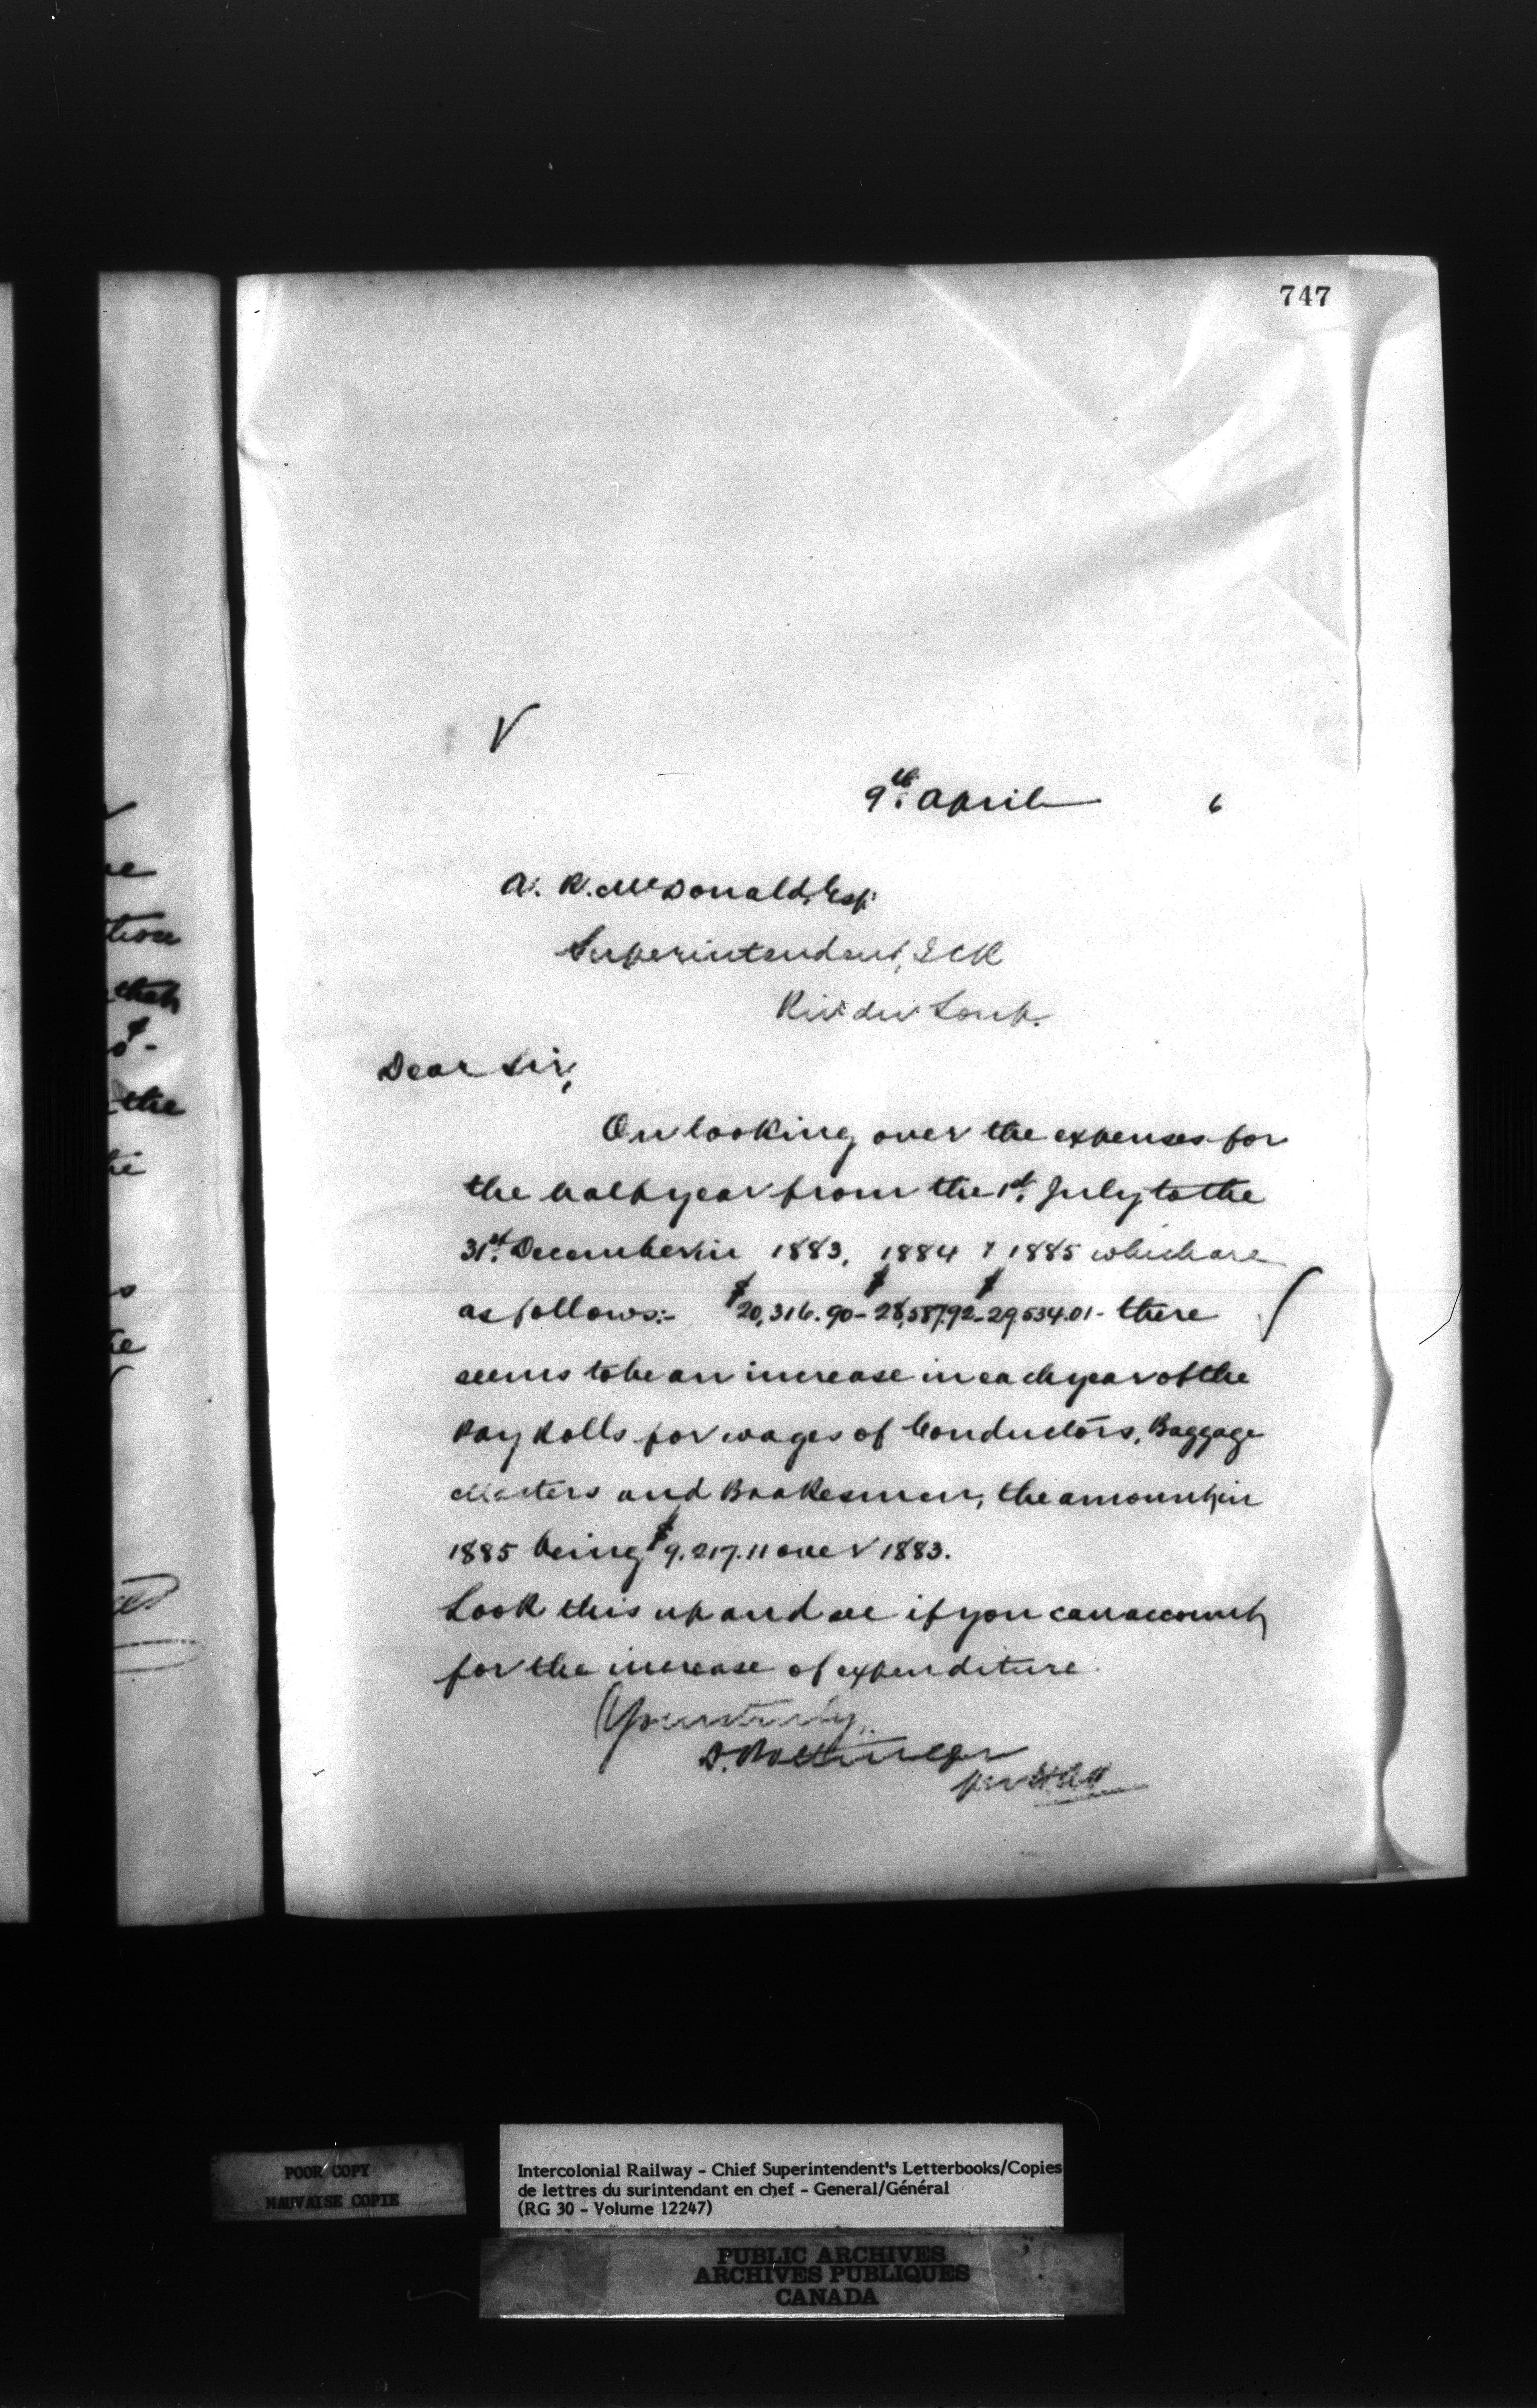 747
9th. April 6
A. R. McDonald, Esq.
Superintendent, ICR
Riv. du Loup.
Dear Sir,
On looking over the expenses for
the half year from the 1st. July to the
31st. December in 1883, 1884 & 1885 which are
as follows:- $20,316.90 - $28,587.92 - $29,534.01 - there
seems to be an increase in each year of the
Pay Rolls for wages of Conductors, Baggage
Masters and Brakesmen, the amount in
1885 being $9,217.11 over 1883.
Look this up and see if you can account
for the increase of expenditure.
Yours truly,
D. Pottinger
per
tion
the
POOR COPY
MAUVAISE COPIE
Intercolonial Railway - Chief Superintendent's Letterbooks/Copies
de lettres du surintendant en chef - General/Général
(RG 30 - Volume 12247)
PUBLIC ARCHIVES
ARCHIVES PUBLIQUES
CANADA